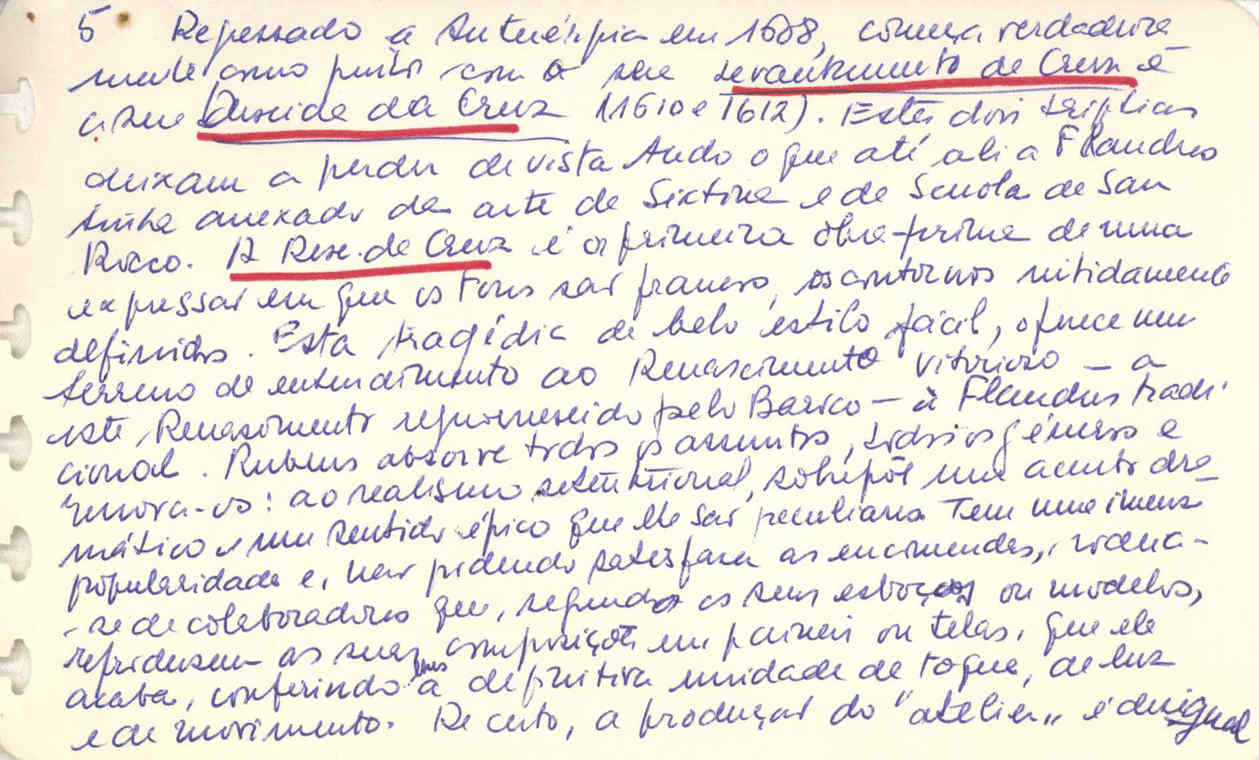 5 Regressado a Antuérpia em 1608, começa verdadeira
mente como pintor com o seu Levantamento da Cruz e
a sua Descida da Cruz (1610 e 1612). Estes dois trípticos
deixam a perder de vista tudo o que até ali a Flandres
tinha anexado da arte da Sixtina e da Scuola de San
Rocco. A Desc. da Cruz é a primeira obra-prima de uma
expressão em que os tons são francos, os contornos nitidamente
definidos. Esta tragédia de belo estilo fácil, oferece um
terreno de entendimento ao Renascimento vitorioso – a
este Renascimento rejuvenescido pelo Barroco – à Flandres tradi
cional. Rubens absorve todos os assuntos, todos os géneros e
renova-os: ao realismo setentrional, sobrepõe um acento dra
mático e um sentido épico que lhe são peculiares. Tem uma imensa
popularidade e, não podendo satisfazer as encomendas, rodeia-
-se de colaboradores que, segundo os seus esboços ou modelos,
reproduzem as suas composições em painéis ou telas, que ele
acaba, conferindo-lhes a definitiva unidade de toque, de luz
e de movimento. De certo, a produção do "atelier" é desigual